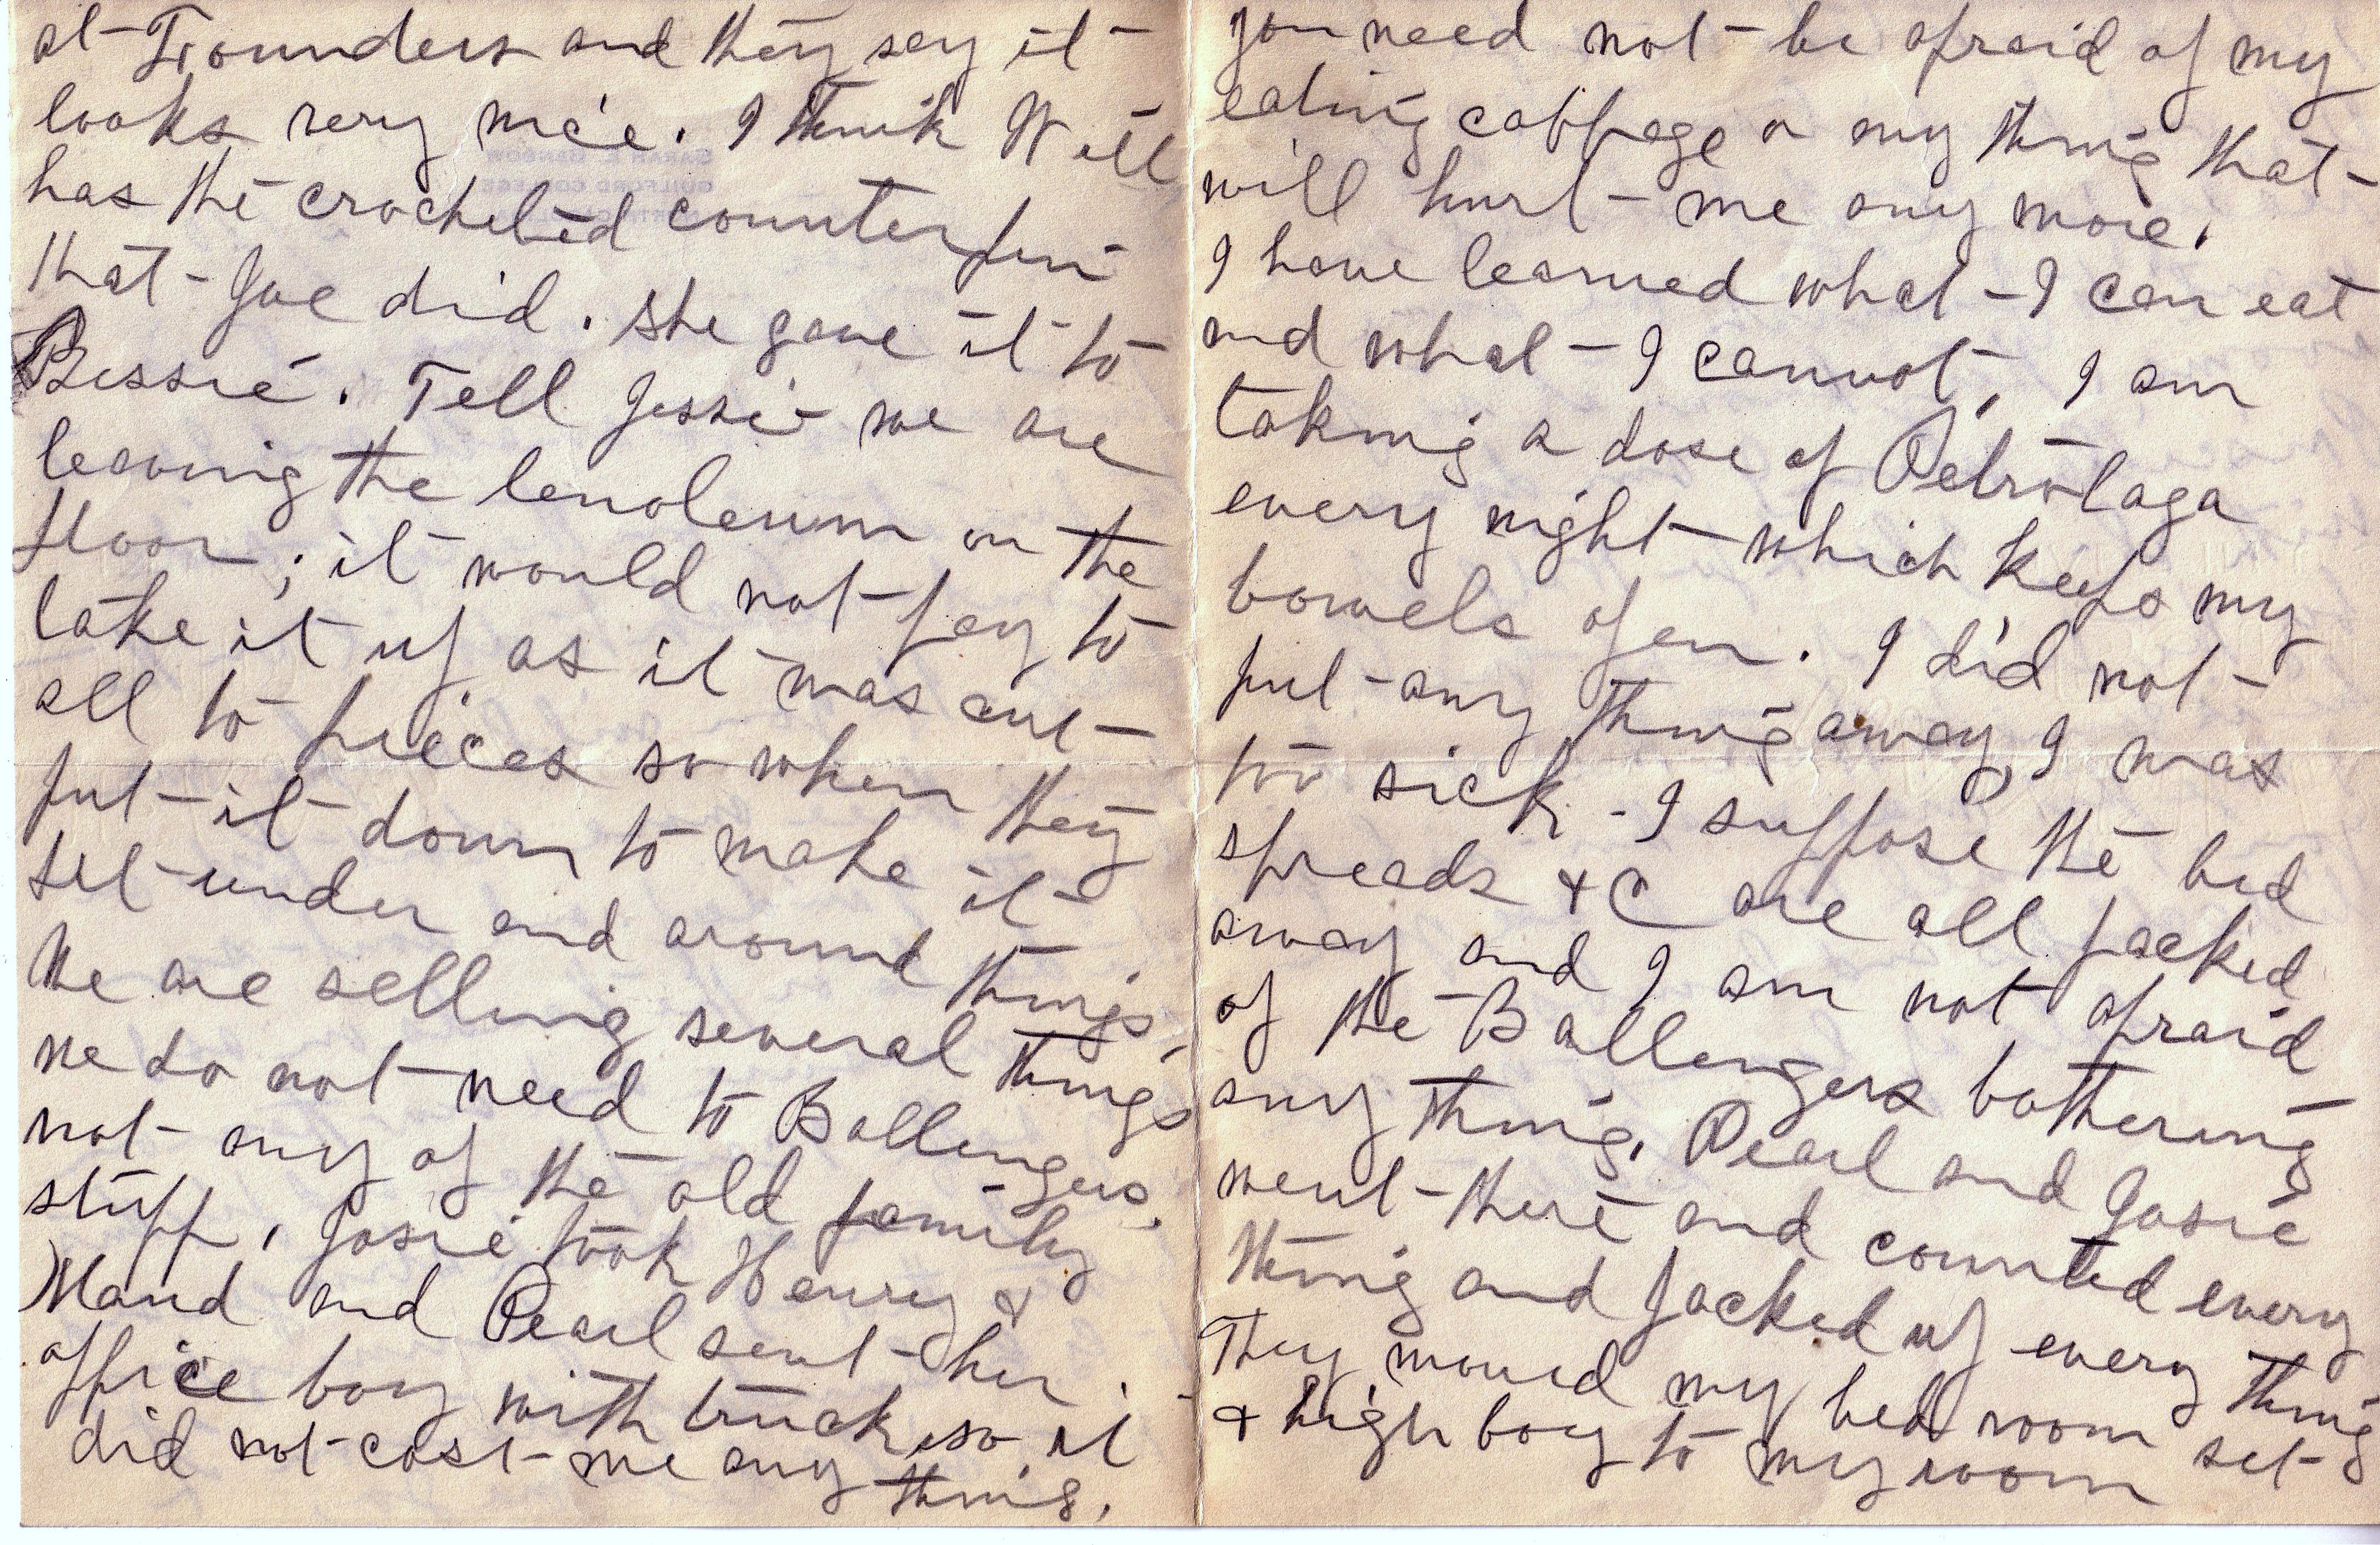 at Founders and they say it
looks very nice. I think Will
has the crocheted counterpin
that Jue did. She gave it to
Bessie. Tell Jessie we are
leaving the lenoleum on the
floor; it would not pay to
take it up as it was cut
all to pieces so when they
put it down to make it
set under and around things.
We are selling several things
we do not need to Ballengers,
not any of the old family
stuff, Josie took Henry &
Maud and Pearl sent her
office boy with truck, so it
did not cost me any thing.
you need not be afraid of my
eating cabbage or any thing that
will hurt me any more.
I have learned what I can eat
and what I cannot, I am
taking a dose of Petrolaga
every night which keeps my
bowels open. I did not
put any thing away, I was
too sick - I suppose the bed
spreads & C are all packed
away and I am not afraid
of the Ballengers bothering
any thing. Pearl and Josie
went there and counted every
thing and packed up every thing
They moved my bed room set
& high boy to my room
SARAH E. BENBOW
GUILFORD COLLEGE